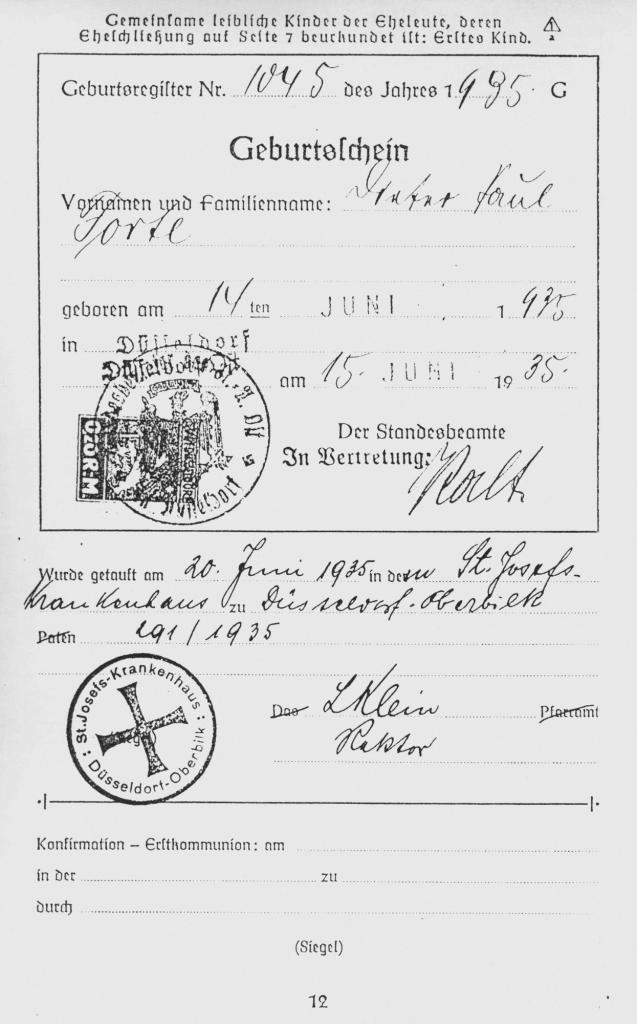 Gemeinsame leibliche Kinder der Eheleute, deren
Eheschließung auf Seite 7 beurkundet ist: Erstes Kind.
Geburtsregister Nr. 1045 des Jahres 1935. G
Geburtsschein
Vornamen und Familienname: Dieter Paul
Forte
geboren am 14ten JUNI 1935
in Düsseldorf
Düsseldorf
am 15. JUNI 1935.
Der Standesbeamte
In Vertretung:
Wurde getauft am 20. Juni 1935 in dem St. Josefs-
krankenhaus zu Düsseldorf-Oberbilk
Paten 291/1935
St. Josefs-Krankenhaus : Düsseldorf-Oberbilk :
Das L Klein Pfarramt
Rektor
Konfirmation – Erstkommunion: am
in der zu
durch
(Siegel)
12